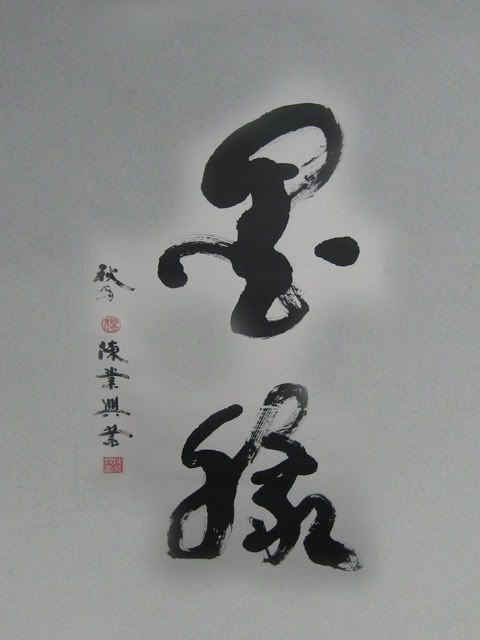 墨緣
秋月
陳業興